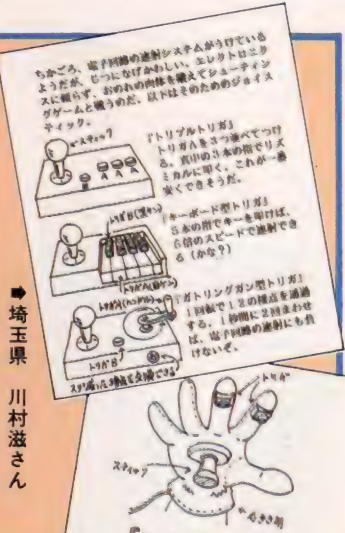 ちかごろ、電子回路の連射システムがうけている
ようだが、じつになげかわしい。エレクトロニク
スに頼らず、おのれの肉体を鍛えてシューティン
グゲームと戦うのだ。以下はそのためのジョイス
ティック。
スティック
B A A A
『トリプルトリガ』
トリガAを3つ並べてつけ
る。真中の3本の指でリズ
ミカルに叩く。これが一番
早くできそうだ。
トリガB(黒ケン)
トリガA(白ケン)
『キーボード型トリガ』
5本の指でキーを叩けば、
5倍のスピードで連射でき
る(かな?)
トリガA(ハンドル)
トリガB
『ガトリングガン型トリガ』
1回転で12の接点を通過
する。1秒間に2回まわせ
ば、電子回路の連射にも負
けないぞ。
トリガ
スティック
➡埼玉県 川村滋さん